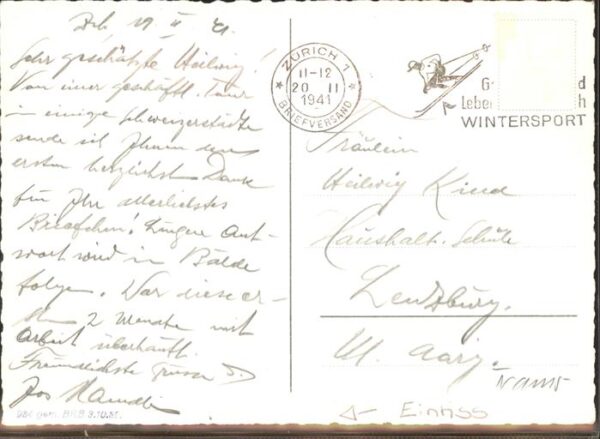 Zch 19 II 41
Sehr geschätzte Heilwig!
Von einer geschäftl. Tour
in einige Schweizerstädte
sende ich Ihnen den
ersten herzlichst Dank
für Ihr allerliebstes
Briefchen! Längere Ant-
wort wird in Bälde
folgen. War diese er-
sten 2 Monate mit
Arbeit überhäuft.
Freundlichste Grüsse
Jos
984 gem. BRB 3.10.39.
ZÜRICH 1
11-12
20 II
1941
BRIEFVERSAND
G d
Lebe h
WINTERSPORT
Fräulein
Heilwig Kind
Haushalt. Schule
Lenzburg.
Kt. Aarg.